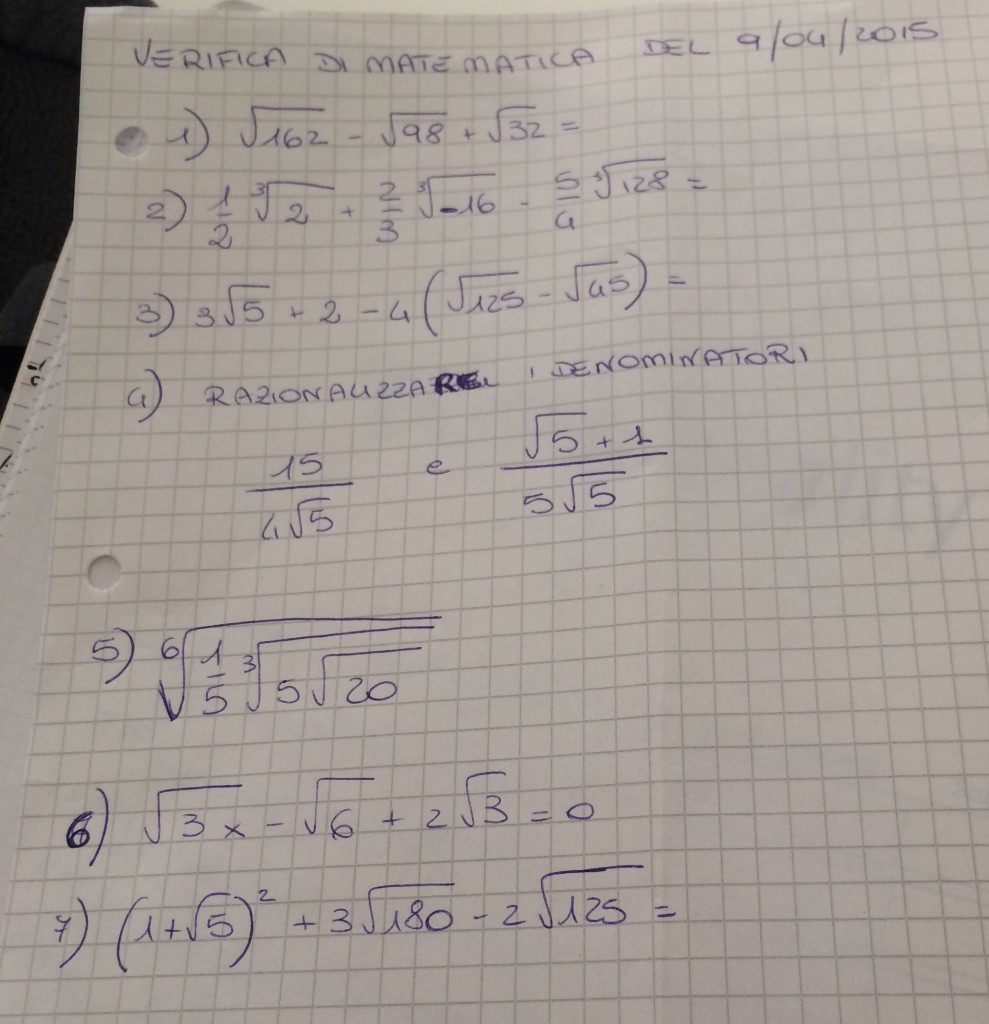 VERIFICA DI MATEMATICA DEL 9/04/2015
1) √162 - √98 + √32 =
2) 1/2 ∛2 + 2/3 ∛-16 - 5/4 ∛128 =
3) 3√5 + 2 - 4(√125 - √45) =
4) RAZIONALIZZARE I DENOMINATORI
15/(4√5) e (√5 + 1)/(5√5)
5) ⁶√(1/5 ∛(5√20))
6) √3x - √6 + 2√3 = 0
7) (1+√5)² + 3√180 - 2√125 =